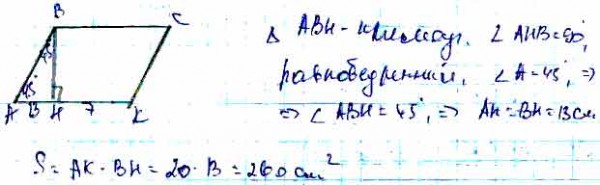 B C
45°
45°
A 13 H 7 K
Δ ABH - прямоуг. ∠ AHB = 90°,
равнобедренный, ∠A = 45°, ⇒
⇒ ∠ ABH = 45°, ⇒ AH = BH = 13 см
S = AK · BH = 20 · 13 = 260 см²